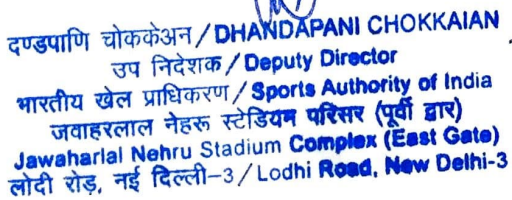 दण्डपाणि चोककेअन / DHANDAPANI CHOKKAIAN
उप निदेशक / Deputy Director
भारतीय खेल प्राधिकरण / Sports Authority of India
जवाहरलाल नेहरू स्टेडियम परिसर (पूर्वी द्वार)
Jawaharlal Nehru Stadium Complex (East Gate)
लोदी रोड़, नई दिल्ली-3 / Lodhi Road, New Delhi-3